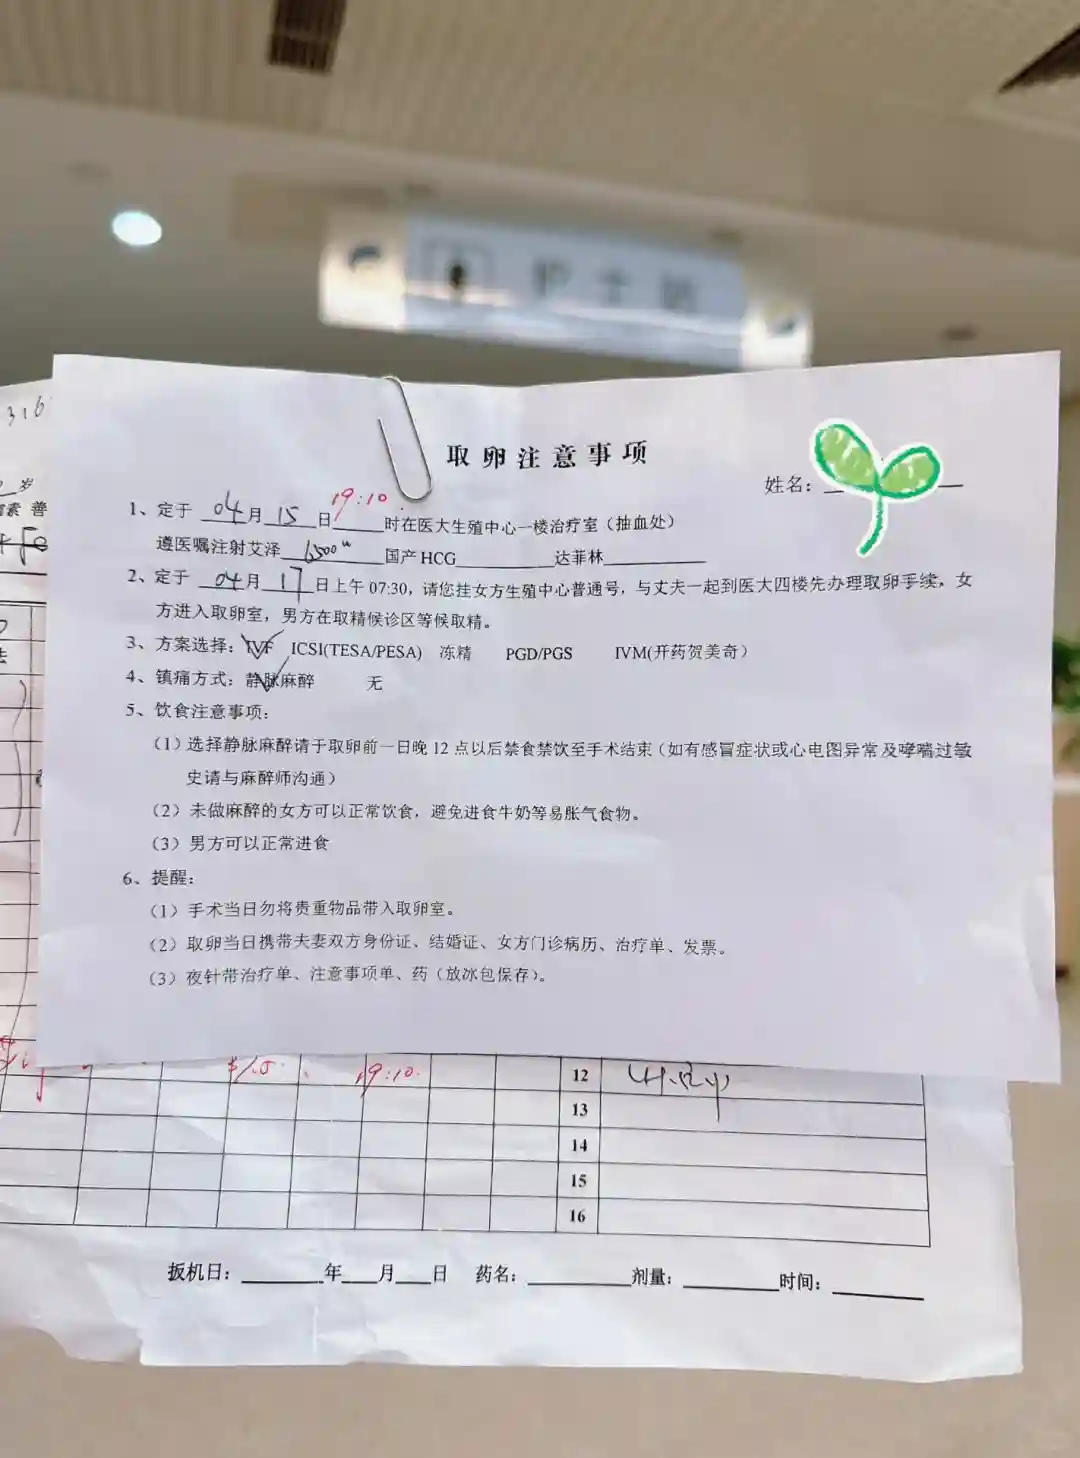 护士站
316
岁
取卵注意事项
姓名：
1、定于 04月15日19:10时在医大生殖中心一楼治疗室（抽血处）
遵医嘱注射艾泽 6500u 国产 HCG 达菲林
2、定于 04月17日上午 07:30，请您挂女方生殖中心普通号，与丈夫一起到医大四楼先办理取卵手续，女
方进入取卵室，男方在取精候诊区等候取精。
3、方案选择：IVF ICSI(TESA/PESA) 冻精 PGD/PGS IVM(开药贺美奇）
4、镇痛方式：静脉麻醉 无
5、饮食注意事项：
（1）选择静脉麻醉请于取卵前一日晚 12 点以后禁食禁饮至手术结束（如有感冒症状或心电图异常及哮喘过敏
史请与麻醉师沟通）
（2）未做麻醉的女方可以正常饮食，避免进食牛奶等易胀气食物。
（3）男方可以正常进食
6、提醒：
（1）手术当日勿将贵重物品带入取卵室。
（2）取卵当日携带夫妻双方身份证、结婚证、女方门诊病历、治疗单、发票。
（3）夜针带治疗单、注意事项单、药（放冰包保存）。
19:10. 12
13
14
15
16
扳机日： 年 月 日 药名： 剂量： 时间：